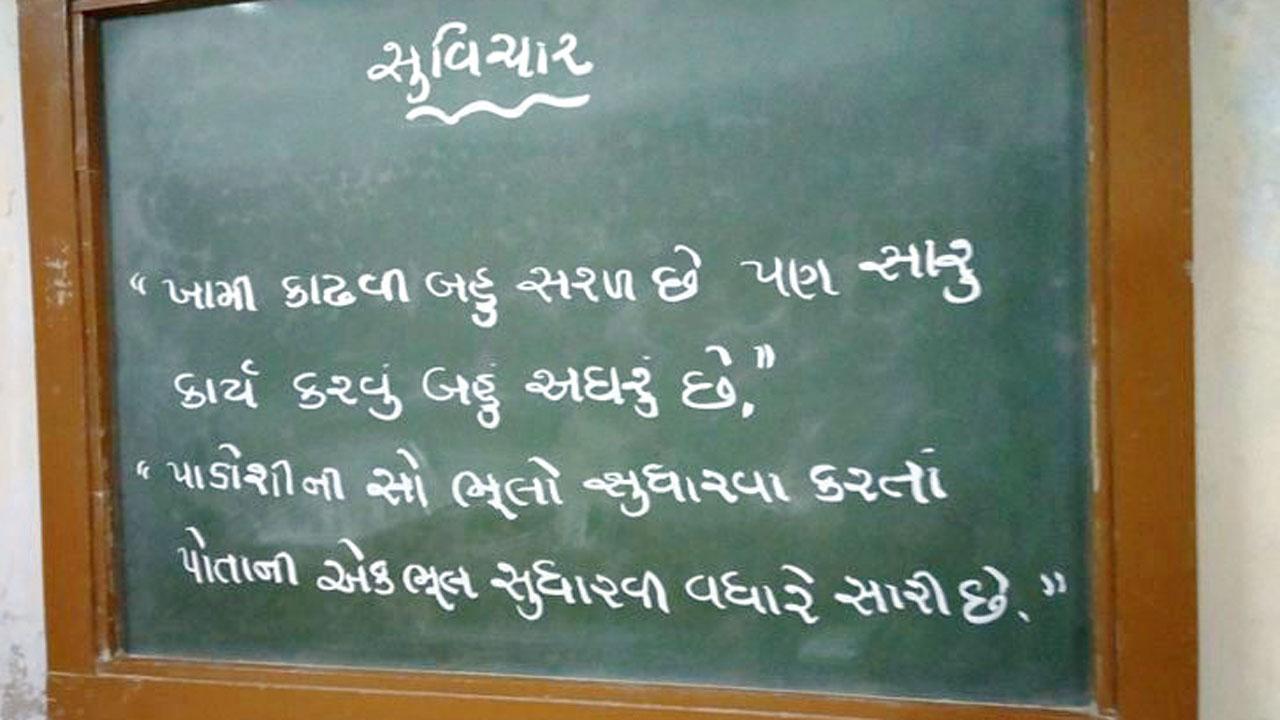 સુવિચાર
“ ખામી કાઢવી બહુ સરળ છે પણ સારુ
કાર્ય કરવું બહું અઘરું છે.”
“ પાડોશીની સો ભૂલો સુધારવા કરતાં
પોતાની એક ભૂલ સુધારવી વધારે સારી છે.”